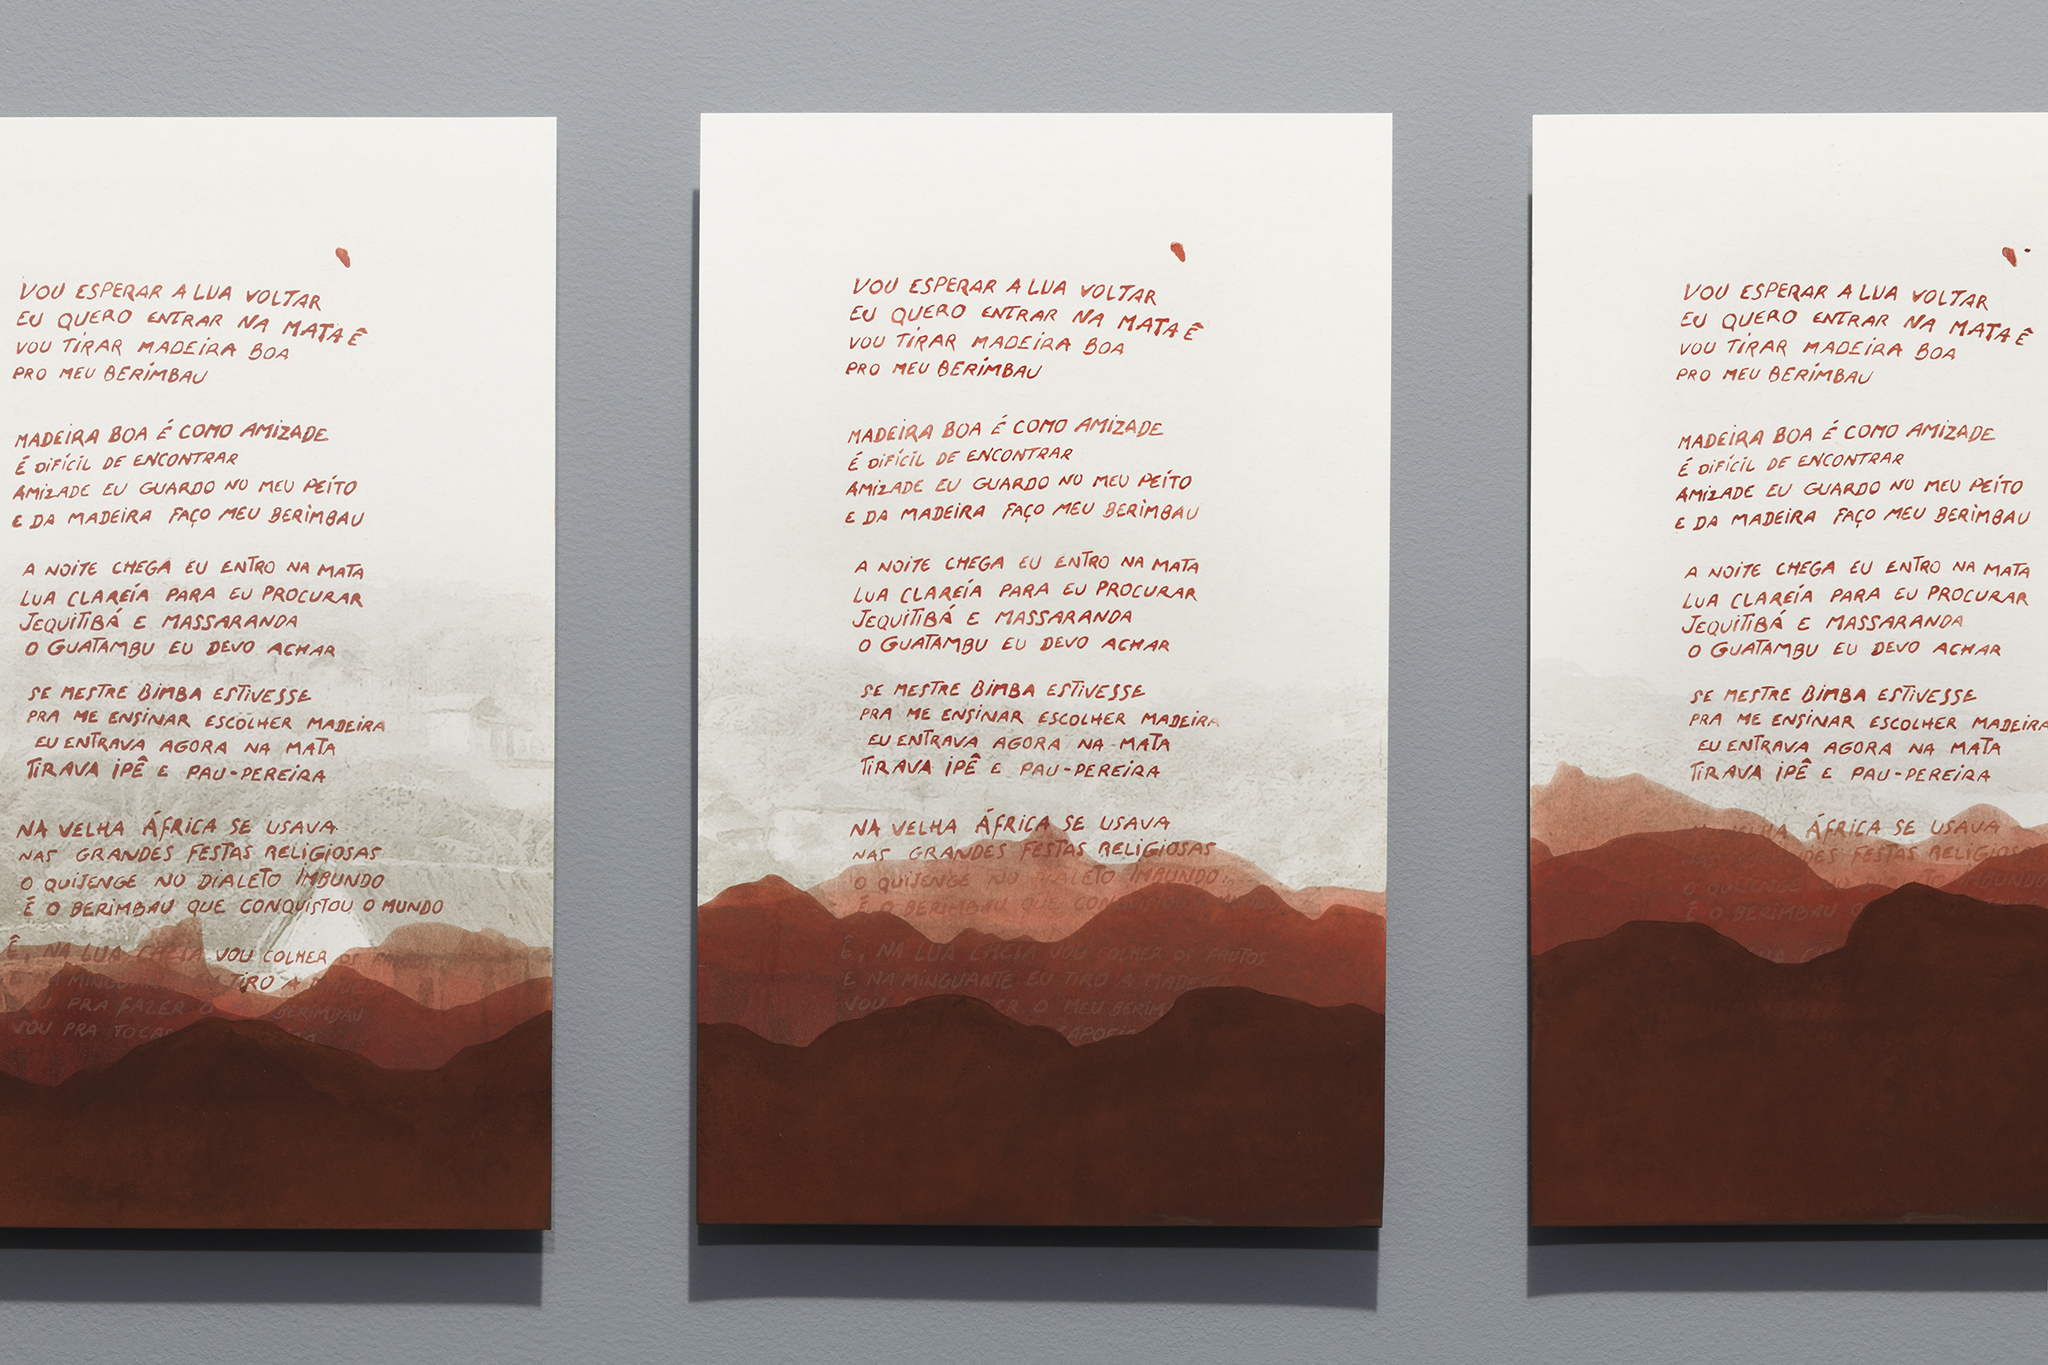 VOU ESPERAR A LUA VOLTAR
EU QUERO ENTRAR NA MATA Ê
VOU TIRAR MADEIRA BOA
PRO MEU BERIMBAU
MADEIRA BOA É COMO AMIZADE
É DIFÍCIL DE ENCONTRAR
AMIZADE EU GUARDO NO MEU PEITO
E DA MADEIRA FAÇO MEU BERIMBAU
A NOITE CHEGA EU ENTRO NA MATA
LUA CLAREIA PARA EU PROCURAR
JEQUITIBÁ E MASSARANDA
O GUATAMBU EU DEVO ACHAR
SE MESTRE BIMBA ESTIVESSE
PRA ME ENSINAR ESCOLHER MADEIRA
EU ENTRAVA AGORA NA MATA
TIRAVA IPÊ E PAU-PEREIRA
NA VELHA ÁFRICA SE USAVA
NAS GRANDES FESTAS RELIGIOSAS
O QUIJENGE NO DIALETO IMBUNDO
É O BERIMBAU QUE CONQUISTOU O MUNDO
Ê, NA LUA CHEIA VOU COLHER OS
MINGUANTE TIRO A
VOU PRA FAZER O BERIMBAU
VOU PRA TOCAR
VOU ESPERAR A LUA VOLTAR
EU QUERO ENTRAR NA MATA Ê
VOU TIRAR MADEIRA BOA
PRO MEU BERIMBAU
MADEIRA BOA É COMO AMIZADE
É DIFÍCIL DE ENCONTRAR
AMIZADE EU GUARDO NO MEU PEITO
E DA MADEIRA FAÇO MEU BERIMBAU
A NOITE CHEGA EU ENTRO NA MATA
LUA CLAREIA PARA EU PROCURAR
JEQUITIBÁ E MASSARANDA
O GUATAMBU EU DEVO ACHAR
SE MESTRE BIMBA ESTIVESSE
PRA ME ENSINAR ESCOLHER MADEIRA
EU ENTRAVA AGORA NA MATA
TIRAVA IPÊ E PAU-PEREIRA
NA VELHA ÁFRICA SE USAVA
NAS GRANDES FESTAS RELIGIOSAS
O QUIJENGE NO DIALETO IMBUNDO
É O BERIMBAU QUE CONQUISTOU
Ê, NA LUA CHEIA VOU COLHER OS FRUTOS
E NA MINGUANTE EU TIRO A MADEIRA
VOU O MEU BERIM
VOU ESPERAR A LUA VOLTAR
EU QUERO ENTRAR NA MATA Ê
VOU TIRAR MADEIRA BOA
PRO MEU BERIMBAU
MADEIRA BOA É COMO AMIZADE
É DIFÍCIL DE ENCONTRAR
AMIZADE EU GUARDO NO MEU PEITO
E DA MADEIRA FAÇO MEU BERIMBAU
A NOITE CHEGA EU ENTRO NA MATA
LUA CLAREIA PARA EU PROCURAR
JEQUITIBÁ E MASSARANDA
O GUATAMBU EU DEVO ACHAR
SE MESTRE BIMBA ESTIVESSE
PRA ME ENSINAR ESCOLHER MADEIRA
EU ENTRAVA AGORA NA MATA
TIRAVA IPÊ E PAU-PEREIRA
NA VELHA ÁFRICA SE USAVA
NAS GRANDES FESTAS RELIGIOSAS
O QUIJENGE NO DIALETO IMBUNDO
É O BERIMBAU